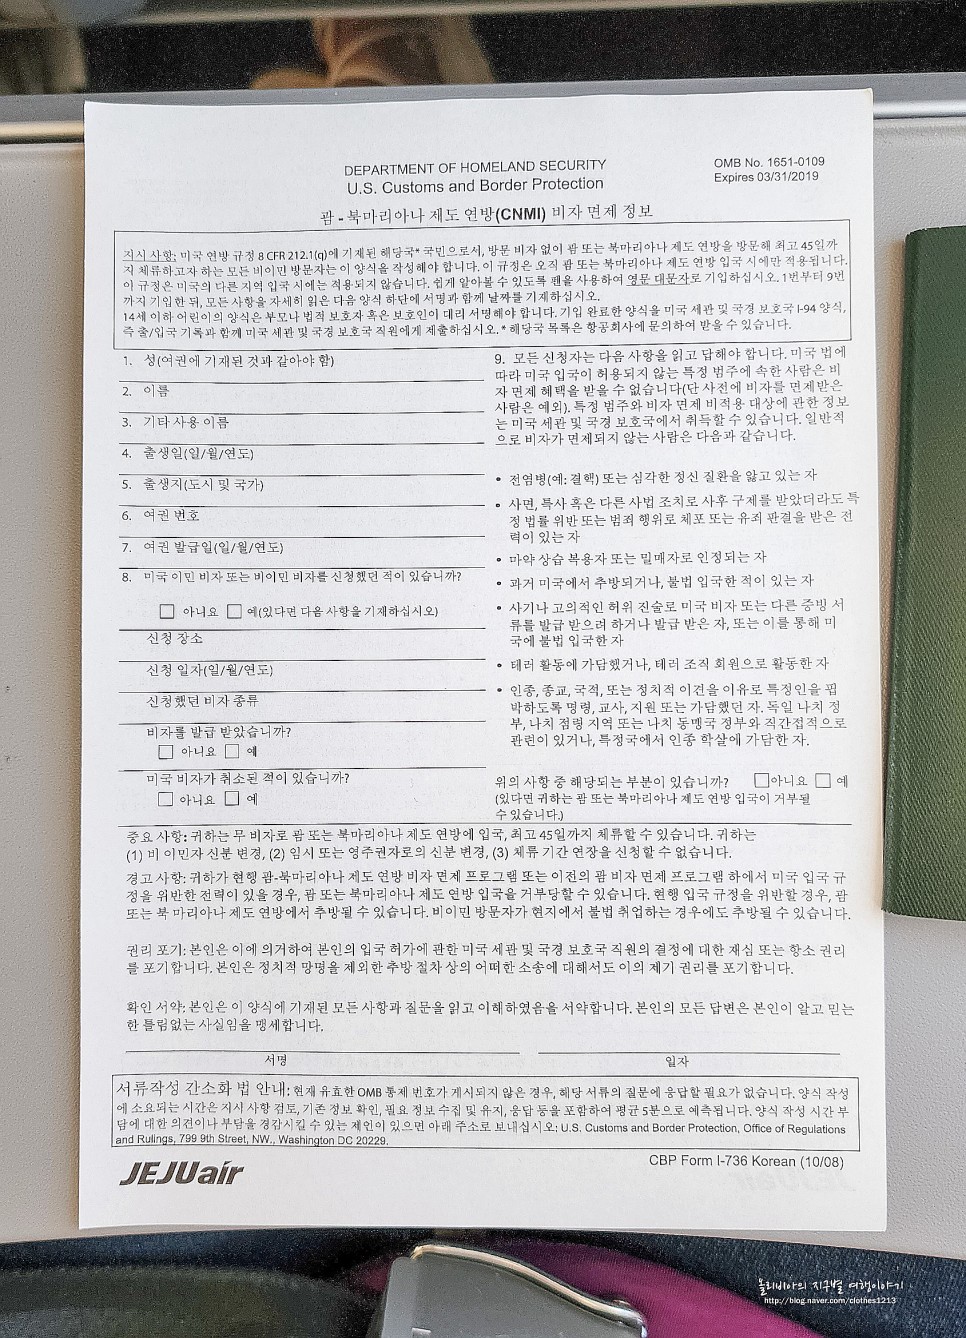 DEPARTMENT OF HOMELAND SECURITY
U.S. Customs and Border Protection
OMB No. 1651-0109
Expires 03/31/2019
괌 - 북마리아나 제도 연방(CNMI) 비자 면제 정보
지시 사항: 미국 연방 규정 8 CFR 212.1(q)에 기재된 해당국* 국민으로서, 방문 비자 없이 괌 또는 북마리아나 제도 연방을 방문해 최고 45일까
지 체류하고자 하는 모든 비이민 방문자는 이 양식을 작성해야 합니다. 이 규정은 오직 괌 또는 북마리아나 제도 연방 입국 시에만 적용됩니다.
이 규정은 미국의 다른 지역 입국 시에는 적용되지 않습니다. 쉽게 알아볼 수 있도록 펜을 사용하여 영문 대문자로 기입하십시오. 1번부터 9번
까지 기입한 뒤, 모든 사항을 자세히 읽은 다음 양식 하단에 서명과 함께 날짜를 기재하십시오.
14세 이하 어린이의 양식은 부모나 법적 보호자 혹은 보호인이 대리 서명해야 합니다. 기입 완료한 양식을 미국 세관 및 국경 보호국 I-94 양식,
즉 출/입국 기록과 함께 미국 세관 및 국경 보호국 직원에게 제출하십시오. * 해당국 목록은 항공회사에 문의하여 받을 수 있습니다.
1. 성(여권에 기재된 것과 같아야 함)
2. 이름
3. 기타 사용 이름
4. 출생일(일/월/연도)
5. 출생지(도시 및 국가)
6. 여권 번호
7. 여권 발급일(일/월/연도)
8. 미국 이민 비자 또는 비이민 비자를 신청했던 적이 있습니까?
아니요 예(있다면 다음 사항을 기재하십시오)
신청 장소
신청 일자(일/월/연도)
신청했던 비자 종류
비자를 발급 받았습니까?
아니요 예
미국 비자가 취소된 적이 있습니까?
아니요 예
9. 모든 신청자는 다음 사항을 읽고 답해야 합니다. 미국 법에
따라 미국 입국이 허용되지 않는 특정 범주에 속한 사람은 비
자 면제 혜택을 받을 수 없습니다(단 사전에 비자를 면제받은
사람은 예외). 특정 범주와 비자 면제 비적용 대상에 관한 정보
는 미국 세관 및 국경 보호국에서 취득할 수 있습니다. 일반적
으로 비자가 면제되지 않는 사람은 다음과 같습니다.
• 전염병(예: 결핵) 또는 심각한 정신 질환을 앓고 있는 자
• 사면, 특사 혹은 다른 사법 조치로 사후 구제를 받았더라도 특
정 법률 위반 또는 범죄 행위로 체포 또는 유죄 판결을 받은 전
력이 있는 자
• 마약 상습 복용자 또는 밀매자로 인정되는 자
• 과거 미국에서 추방되거나, 불법 입국한 적이 있는 자
• 사기나 고의적인 허위 진술로 미국 비자 또는 다른 증빙 서
류를 발급 받으려 하거나 발급 받은 자, 또는 이를 통해 미
국에 불법 입국한 자
• 테러 활동에 가담했거나, 테러 조직 회원으로 활동한 자
• 인종, 종교, 국적, 또는 정치적 이견을 이유로 특정인을 핍
박하도록 명령, 교사, 지원 또는 가담했던 자. 독일 나치 정
부, 나치 점령 지역 또는 나치 동맹국 정부와 직간접적으로
관련이 있거나, 특정국에서 인종 학살에 가담한 자.
위의 사항 중 해당되는 부분이 있습니까? 아니요 예
(있다면 귀하는 괌 또는 북마리아나 제도 연방 입국이 거부될
수 있습니다.)
중요 사항: 귀하는 무 비자로 괌 또는 북마리아나 제도 연방에 입국, 최고 45일까지 체류할 수 있습니다. 귀하는
(1) 비 이민자 신분 변경, (2) 임시 또는 영주권자로의 신분 변경, (3) 체류 기간 연장을 신청할 수 없습니다.
경고 사항: 귀하가 현행 괌-북마리아나 제도 연방 비자 면제 프로그램 또는 이전의 괌 비자 면제 프로그램 하에서 미국 입국 규
정을 위반한 전력이 있을 경우, 괌 또는 북마리아나 제도 연방 입국을 거부당할 수 있습니다. 현행 입국 규정을 위반할 경우, 괌
또는 북 마리아나 제도 연방에서 추방될 수 있습니다. 비이민 방문자가 현지에서 불법 취업하는 경우에도 추방될 수 있습니다.
권리 포기: 본인은 이에 의거하여 본인의 입국 허가에 관한 미국 세관 및 국경 보호국 직원의 결정에 대한 재심 또는 항소 권리
를 포기합니다. 본인은 정치적 망명을 제외한 추방 절차 상의 어떠한 소송에 대해서도 이의 제기 권리를 포기합니다.
확인 서약: 본인은 이 양식에 기재된 모든 사항과 질문을 읽고 이해하였음을 서약합니다. 본인의 모든 답변은 본인이 알고 믿는
한 틀림없는 사실임을 맹세합니다.
서명 일자
서류작성 간소화 법 안내: 현재 유효한 OMB 통제 번호가 게시되지 않은 경우, 해당 서류의 질문에 응답할 필요가 없습니다. 양식 작성
에 소요되는 시간은 지시 사항 검토, 기존 정보 확인, 필요 정보 수집 및 유지, 응답 등을 포함하여 평균 5분으로 예측됩니다. 양식 작성 시간 부
담에 대한 의견이나 부담을 경감시킬 수 있는 제안이 있으면 아래 주소로 보내십시오: U.S. Customs and Border Protection, Office of Regulations
and Rulings, 799 9th Street, NW., Washington DC 20229.
JEJUair
CBP Form I-736 Korean (10/08)
올리비아의 지구별 여행이야기
http://blog.naver.com/clothes1213